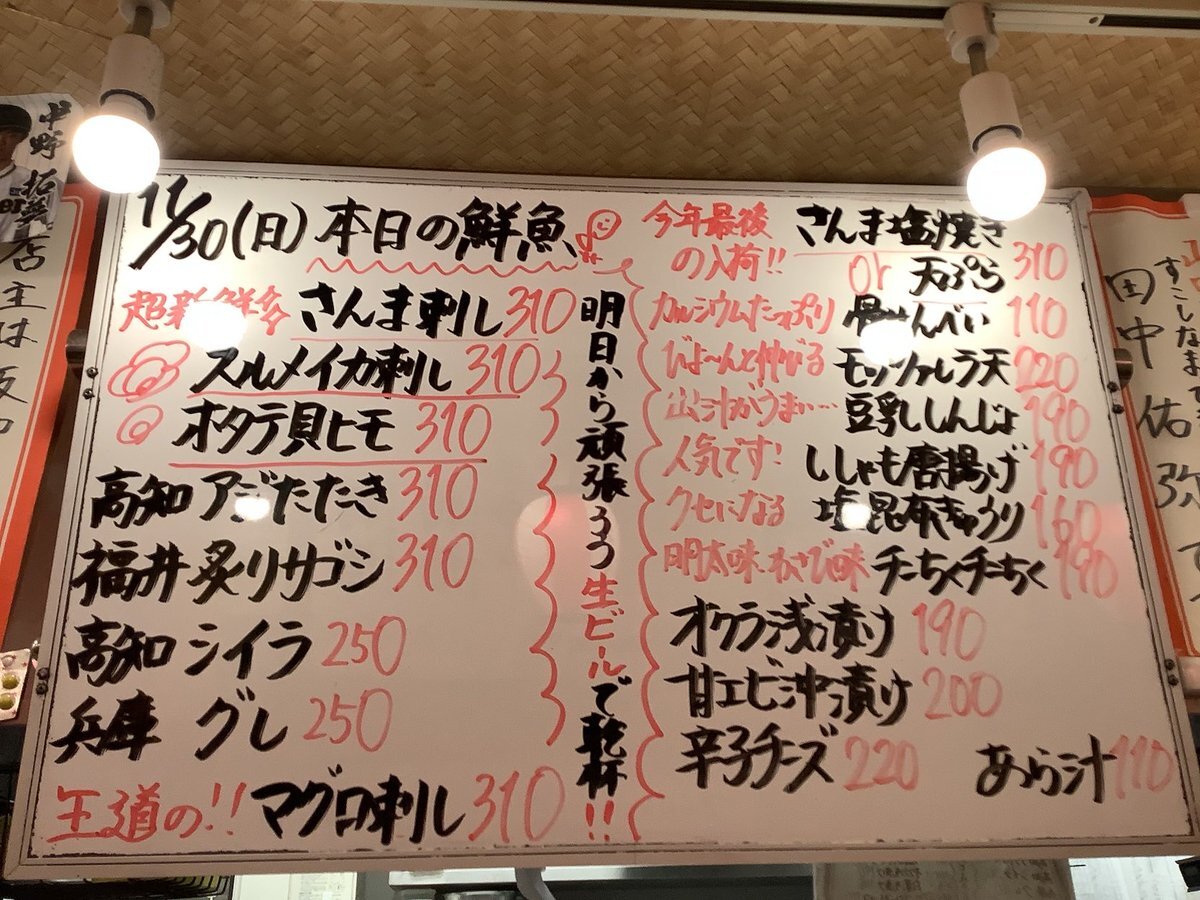 11/30(日) 本日の鮮魚
超新鮮 さんま刺し 310
スルメイカ刺し 310
ホタテ貝ヒモ 310
高知 アジたたき 310
福井 炙りサゴシ 310
高知 シイラ 250
兵庫 グレ 250
王道の!! マグロ刺し 310
明日から頑張ろう 生ビールで乾杯!!
今年最後の入荷!! さんま塩焼き
or 天ぷら 310
カルシウムたっぷり 骨せんべい 110
びよ〜んと伸びる モッツァレラ天 220
出汁がうまい… 豆乳しんじょ 190
人気です! ししゃも唐揚げ 190
クセになる 塩昆布きゅうり 160
明太味 わさび味 チーちくチーちく 190
オクラ浅漬け 190
甘エビ沖漬け 200
辛子チーズ 220
あら汁 110
中野 拓
店主は
田中佑弥